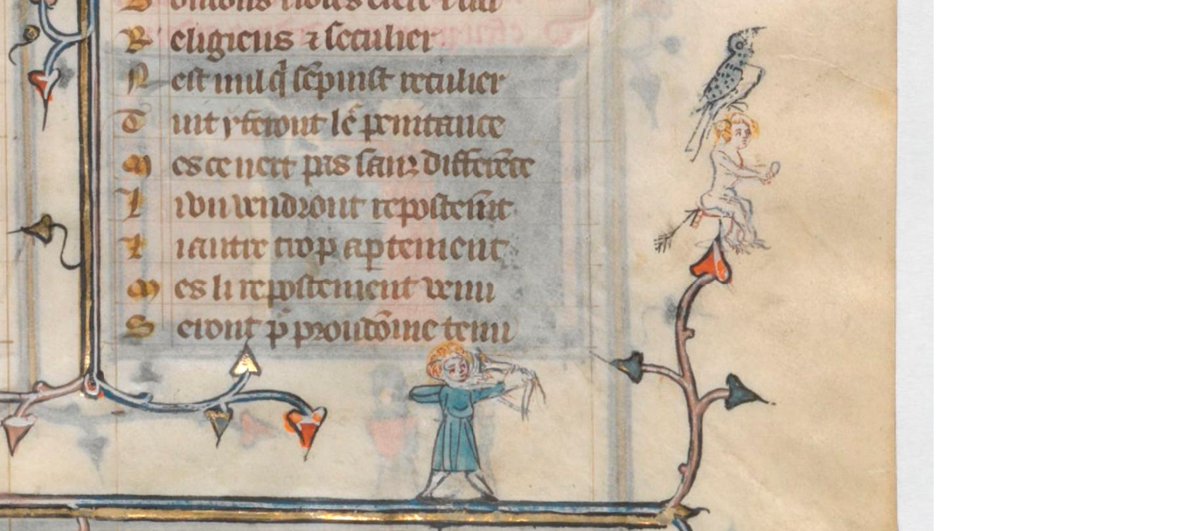 B
Religieus ⁊ seculier
N'est nul q̃ s'ẽ puist reculier
Tuit y feront lẽ penitance
Mes ce nert pas sanz differẽce
Li .i. vendront repostem̃t
Li autre trop apertement
Mes li repostement venu
Seront p̃ proudõme tenu